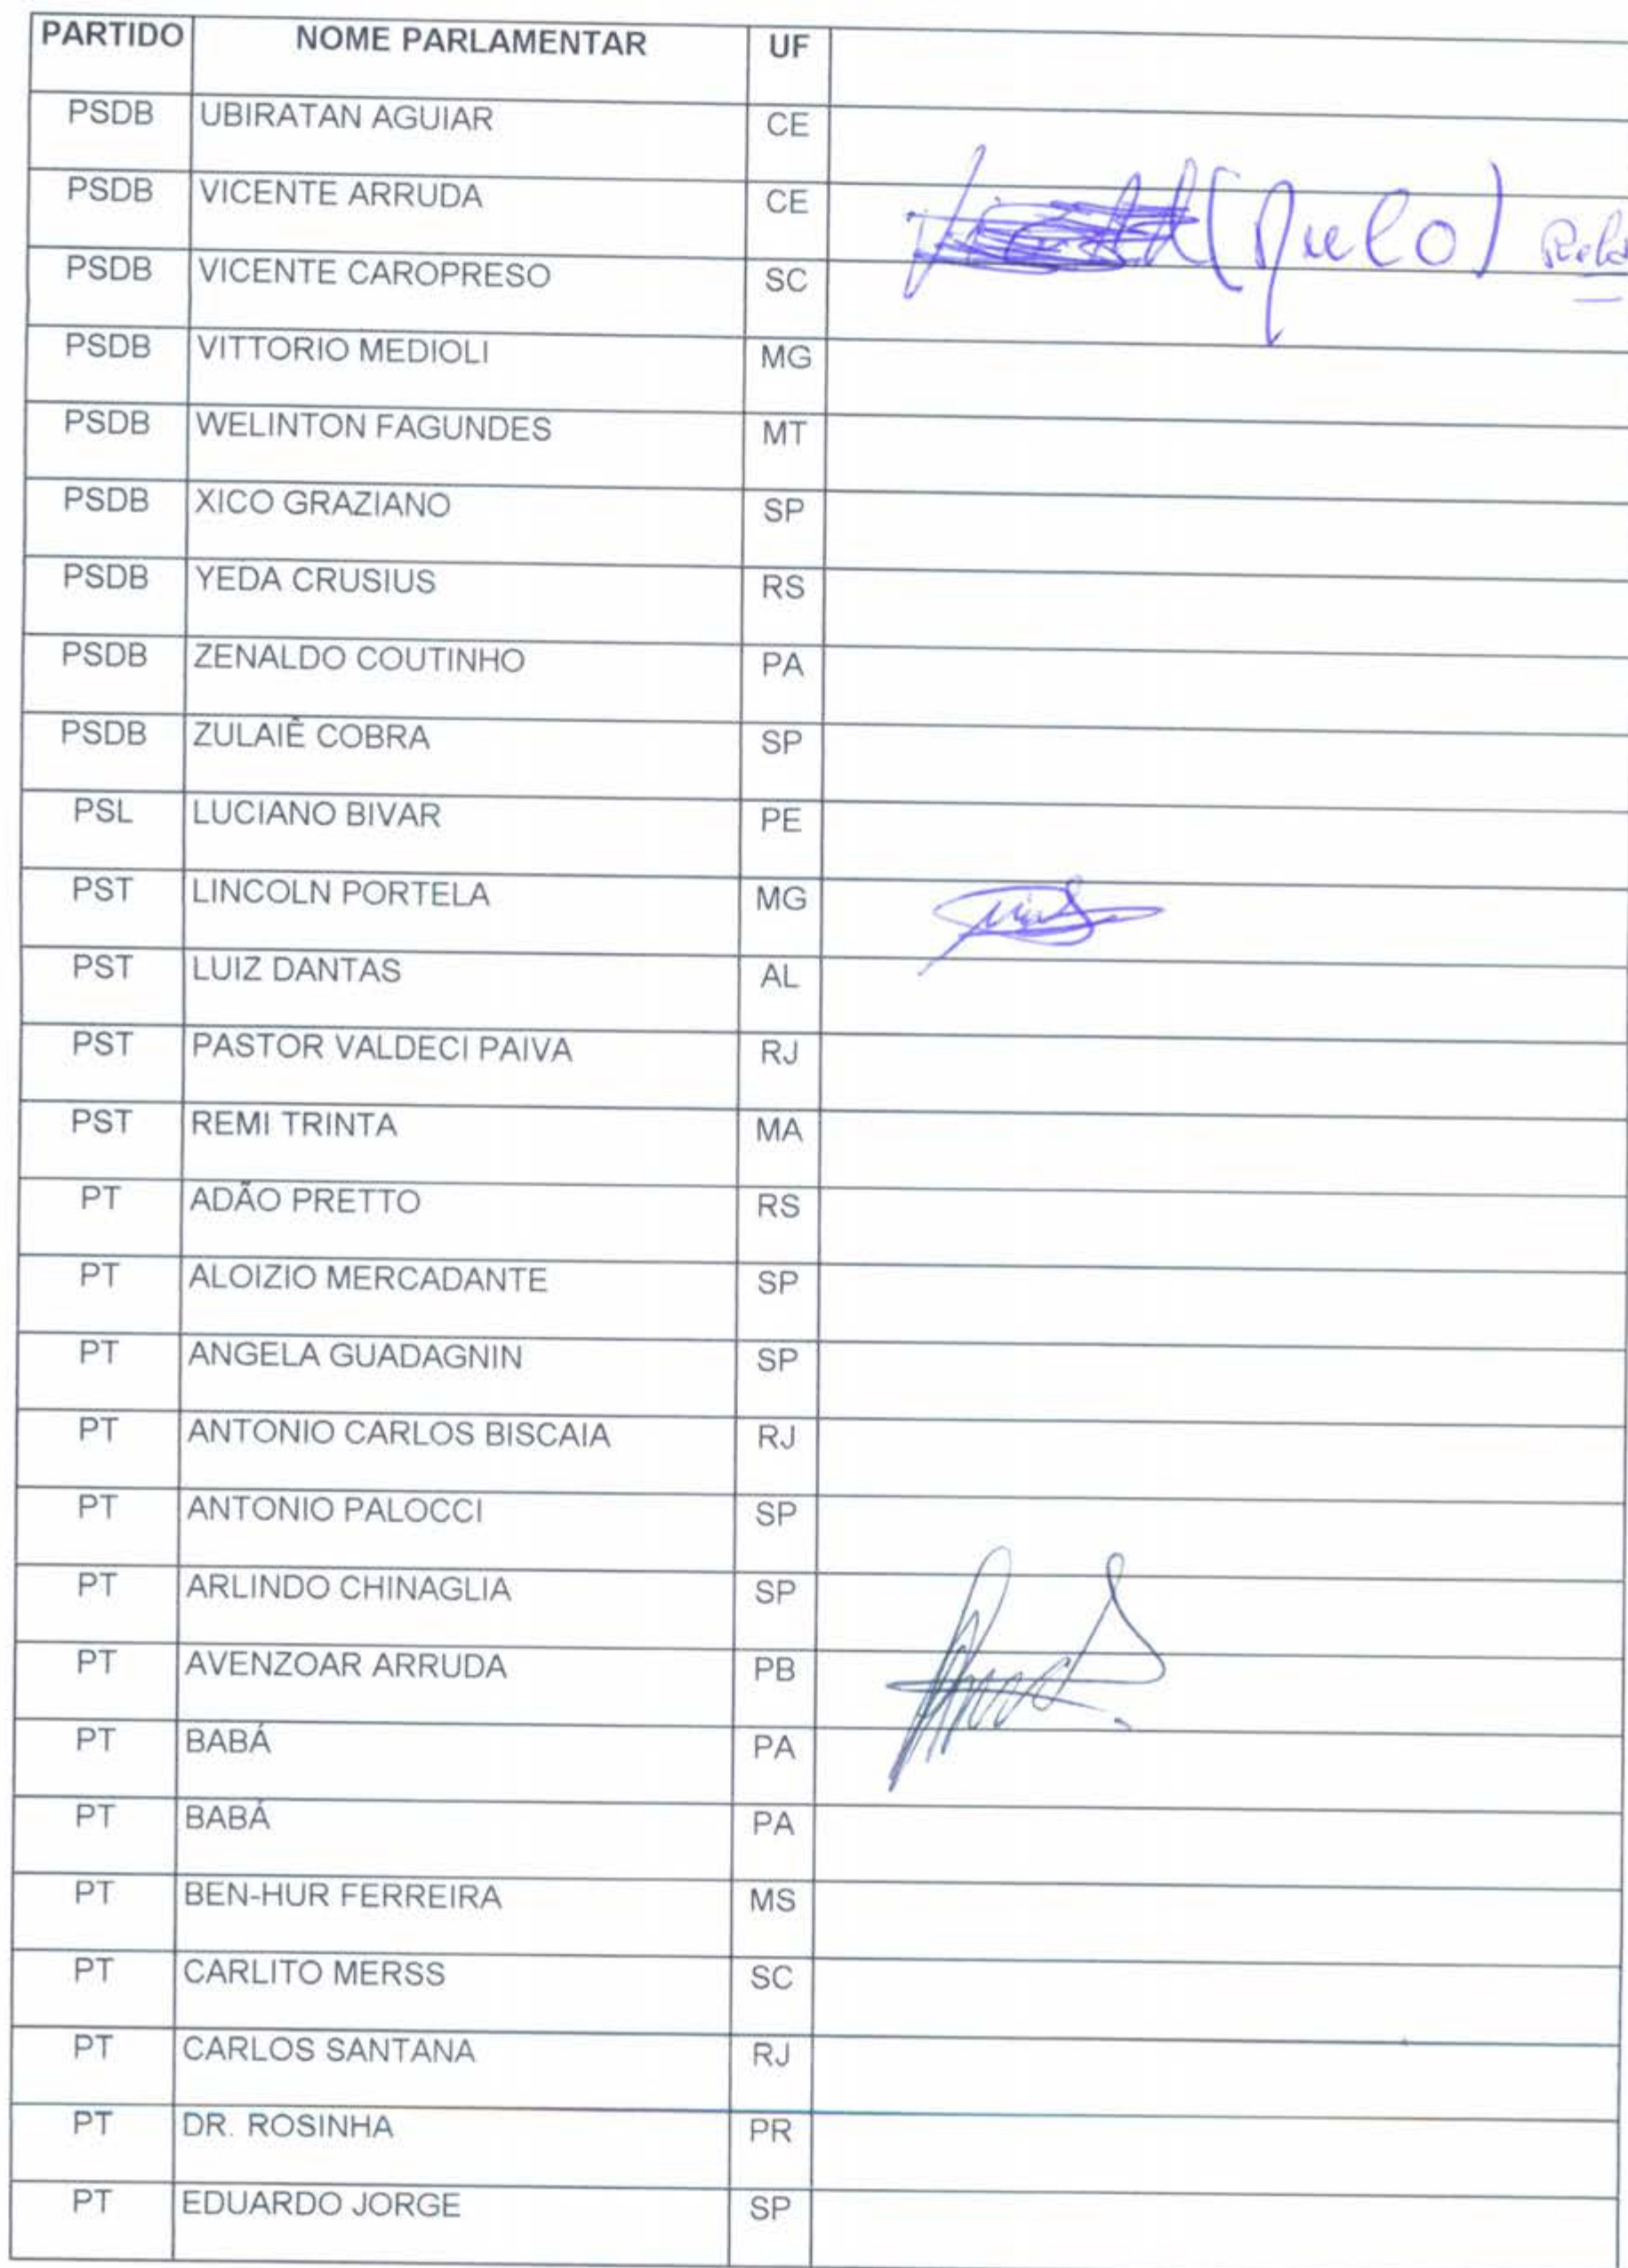 PARTIDO NOME PARLAMENTAR UF
PSDB UBIRATAN AGUIAR CE
PSDB VICENTE ARRUDA CE
PSDB VICENTE CAROPRESO SC
PSDB VITTORIO MEDIOLI MG
PSDB WELINTON FAGUNDES MT
PSDB XICO GRAZIANO SP
PSDB YEDA CRUSIUS RS
PSDB ZENALDO COUTINHO PA
PSDB ZULAIÊ COBRA SP
PSL LUCIANO BIVAR PE
PST LINCOLN PORTELA MG
PST LUIZ DANTAS AL
PST PASTOR VALDECI PAIVA RJ
PST REMI TRINTA MA
PT ADÃO PRETTO RS
PT ALOIZIO MERCADANTE SP
PT ANGELA GUADAGNIN SP
PT ANTONIO CARLOS BISCAIA RJ
PT ANTONIO PALOCCI SP
PT ARLINDO CHINAGLIA SP
PT AVENZOAR ARRUDA PB
PT BABÁ PA
PT BABÁ PA
PT BEN-HUR FERREIRA MS
PT CARLITO MERSS SC
PT CARLOS SANTANA RJ
PT DR. ROSINHA PR
PT EDUARDO JORGE SP